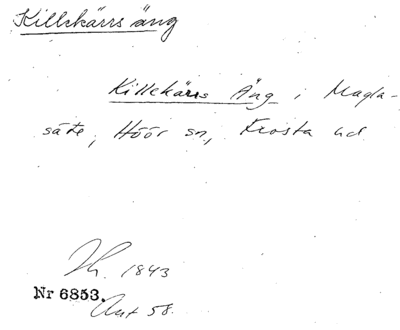 Killekärrs äng
Killekärrs Äng i Magla-
säte, Höör sn, Frosta hd
Th. 1843
Nr 6853.
Ant 58.